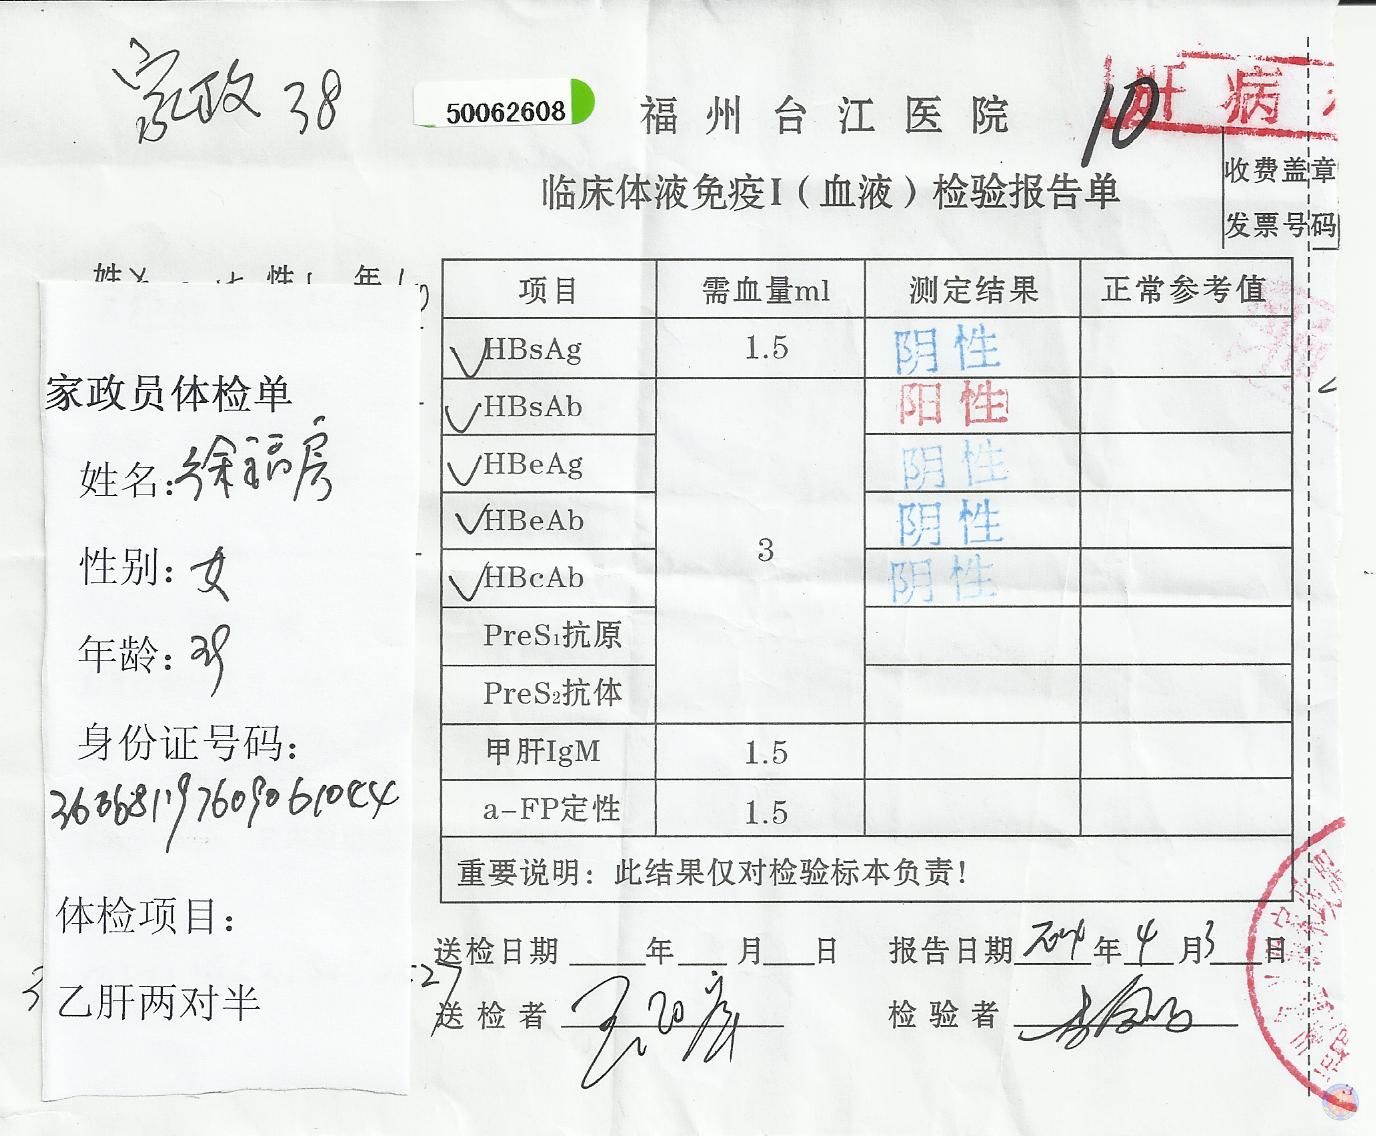 家政 38
50062608
福州台江医院
10
肝病
临床体液免疫I（血液）检验报告单
收费盖章
发票号码
姓 性 年
家政员体检单
姓名：徐福房
性别：女
年龄：38
身份证号码：
体检项目：
乙肝两对半
项目 需血量ml 测定结果 正常参考值
✓HBsAg 1.5 阴性
✓HBsAb 阳性
✓HBeAg 阴性
✓HBeAb 3 阴性
✓HBcAb 阴性
PreS₁抗原
PreS₂抗体
甲肝IgM 1.5
a-FP定性 1.5
重要说明：此结果仅对检验标本负责！
送检日期 年 月 日 报告日期 2014年4月3日
:27
送检者 检验者